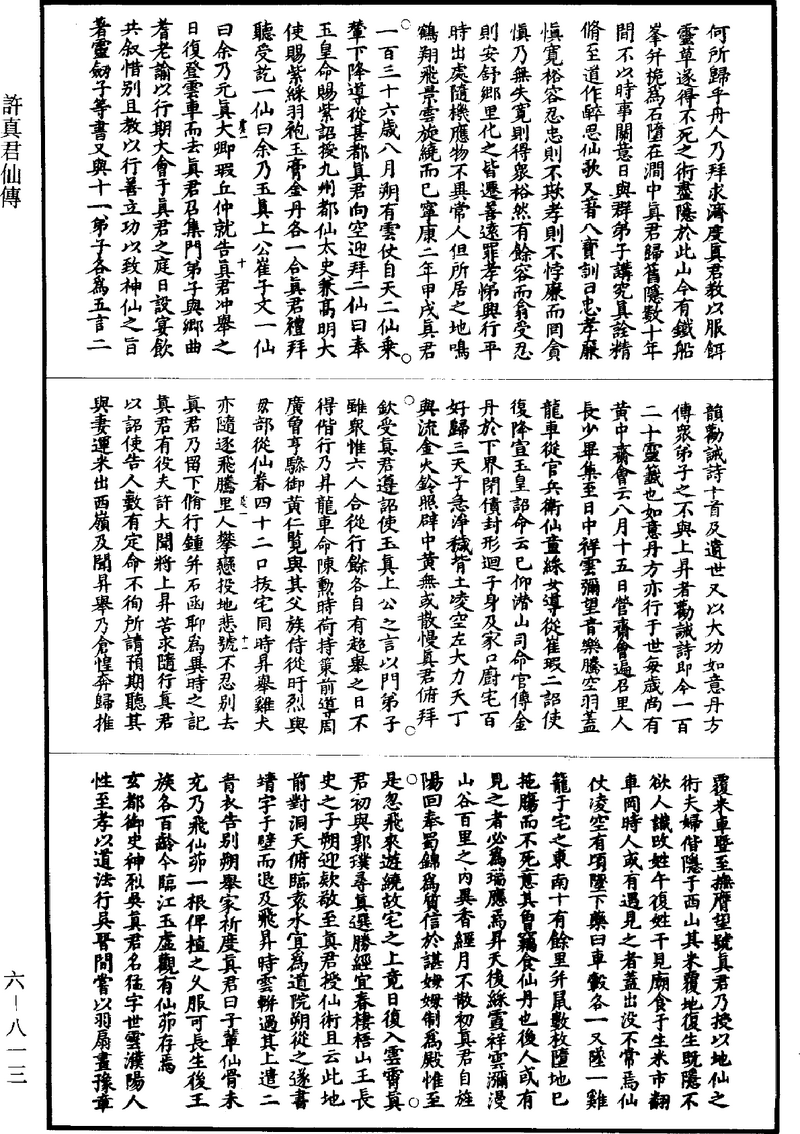 許真君仙傳
何所歸乎舟人乃拜求濟度真君教以服餌
靈草遂得不死之術盡隱於此山今有鐵船
峯并桅為石隨在澗中真君歸舊隱數十年
間不以時事關意日與群弟子講究真詮精
脩至道作醉思仙歌又著八寶訓曰忠孝廉
慎寬裕容忍忠則不欺孝則不悖廉而罔貪
慎乃無失寬則得衆裕然有餘容而翕受忍
則安舒鄉里化之皆遷善遠罪孝悌興行平
時出處隨機應物不異常人但所居之地鳴
鶴翔飛景雲旋繞而已寧康二年甲戌真君
一百三十六歲八月朔有雲仗自天二仙乘
輦下降導從甚都真君向空迎拜二仙曰奉
玉皇命賜紫詔授九州都仙太史兼高明大
使賜紫綵羽袍玉膏金丹各一合真君禮拜
聽受訖一仙曰余乃玉真上公崔子文一仙
曰余乃元真大卿瑕丘仲就告真君冲舉之
日復登雲車而去真君召集門弟子與鄉曲
耆老諭以行期大會于真君之庭日設宴飲
共叙惜別且教以行善立功以致神仙之旨
著靈劔子等書又與十一弟子各為五言二
韻勸誡詩十首及遺世又以大功如意丹方
傳衆弟子之不與上昇者勸誡詩即今一百
二十靈籤也如意丹方亦行于世每歲尚有
黃中齋會云八月十五日營齋會遍召里人
長少畢集至日中祥雲彌望音樂騰空羽蓋
龍車從官兵衛仙童綵女導從崔瑕二詔使
復降宣玉皇詔命云已仰潜山司命官傳金
丹於下界閉債封形迴子身及家口廚宅百
好歸三天子急淨穢背土凌空左大力天丁
與流金火鈴照辟中黃無或散慢真君俯拜
欽受真君遵詔使玉真上公之言以門弟子
雖衆惟六人合從行餘各自有超舉之日不
得偕行乃昇龍車命陳勳時荷持策前導周
廣曾亨驂御黃仁覽與其父族侍從盱烈與
母部從仙眷四十二口拔宅同時昇舉雞犬
亦隨逐飛騰里人攀戀投地悲號不忍別去
真君乃留下脩行鍾并石函聊為異時之記
真君有役夫許大聞將上昇苦求隨行真君
以詔使告人數有定命不徇所請預期聽其
與妻運米出西嶺及聞昇舉乃倉惶奔歸推
覆米車暨至撫膺望號真君乃授以地仙之
術夫婦偕隱于西山其米覆地復生既隱不
欲人識改姓午復姓干見廟食于生米市翻
車岡時人或有遇見之者蓋出没不常焉仙
仗凌空有頃墜下藥臼車轂各一又墜一雞
籠于宅之東南十有餘里并鼠數枚墮地已
拖腸而不死意其曾竊食仙丹也後人或有
見之者必為瑞應焉昇天後綵霞祥雲瀰漫
山谷百里之内異香經月不散初真君自旌
陽回奉蜀錦為質信於諶姆姆制為殿帷至
是忽飛來遊繞故宅之上竟日復入雲霄真
君初與郭璞尋真選勝經宜春棲梧山王長
史之子朔迎欵敬至真君授仙術且云此地
前對洞天俯臨袁水宜為道院朔從之遂書
靖字于壁而退及飛昇時雲軿過其上遣二
青衣告別朔舉家祈度真君曰子輩仙骨未
充乃飛仙茆一根俾植之久服可長生後王
族各百齡今臨江玉虛觀有仙茆存焉
玄都御史神烈吳真君名猛字世雲濮陽人
性至孝以道法行吳晉間嘗以羽扇畫豫章
六－八一三